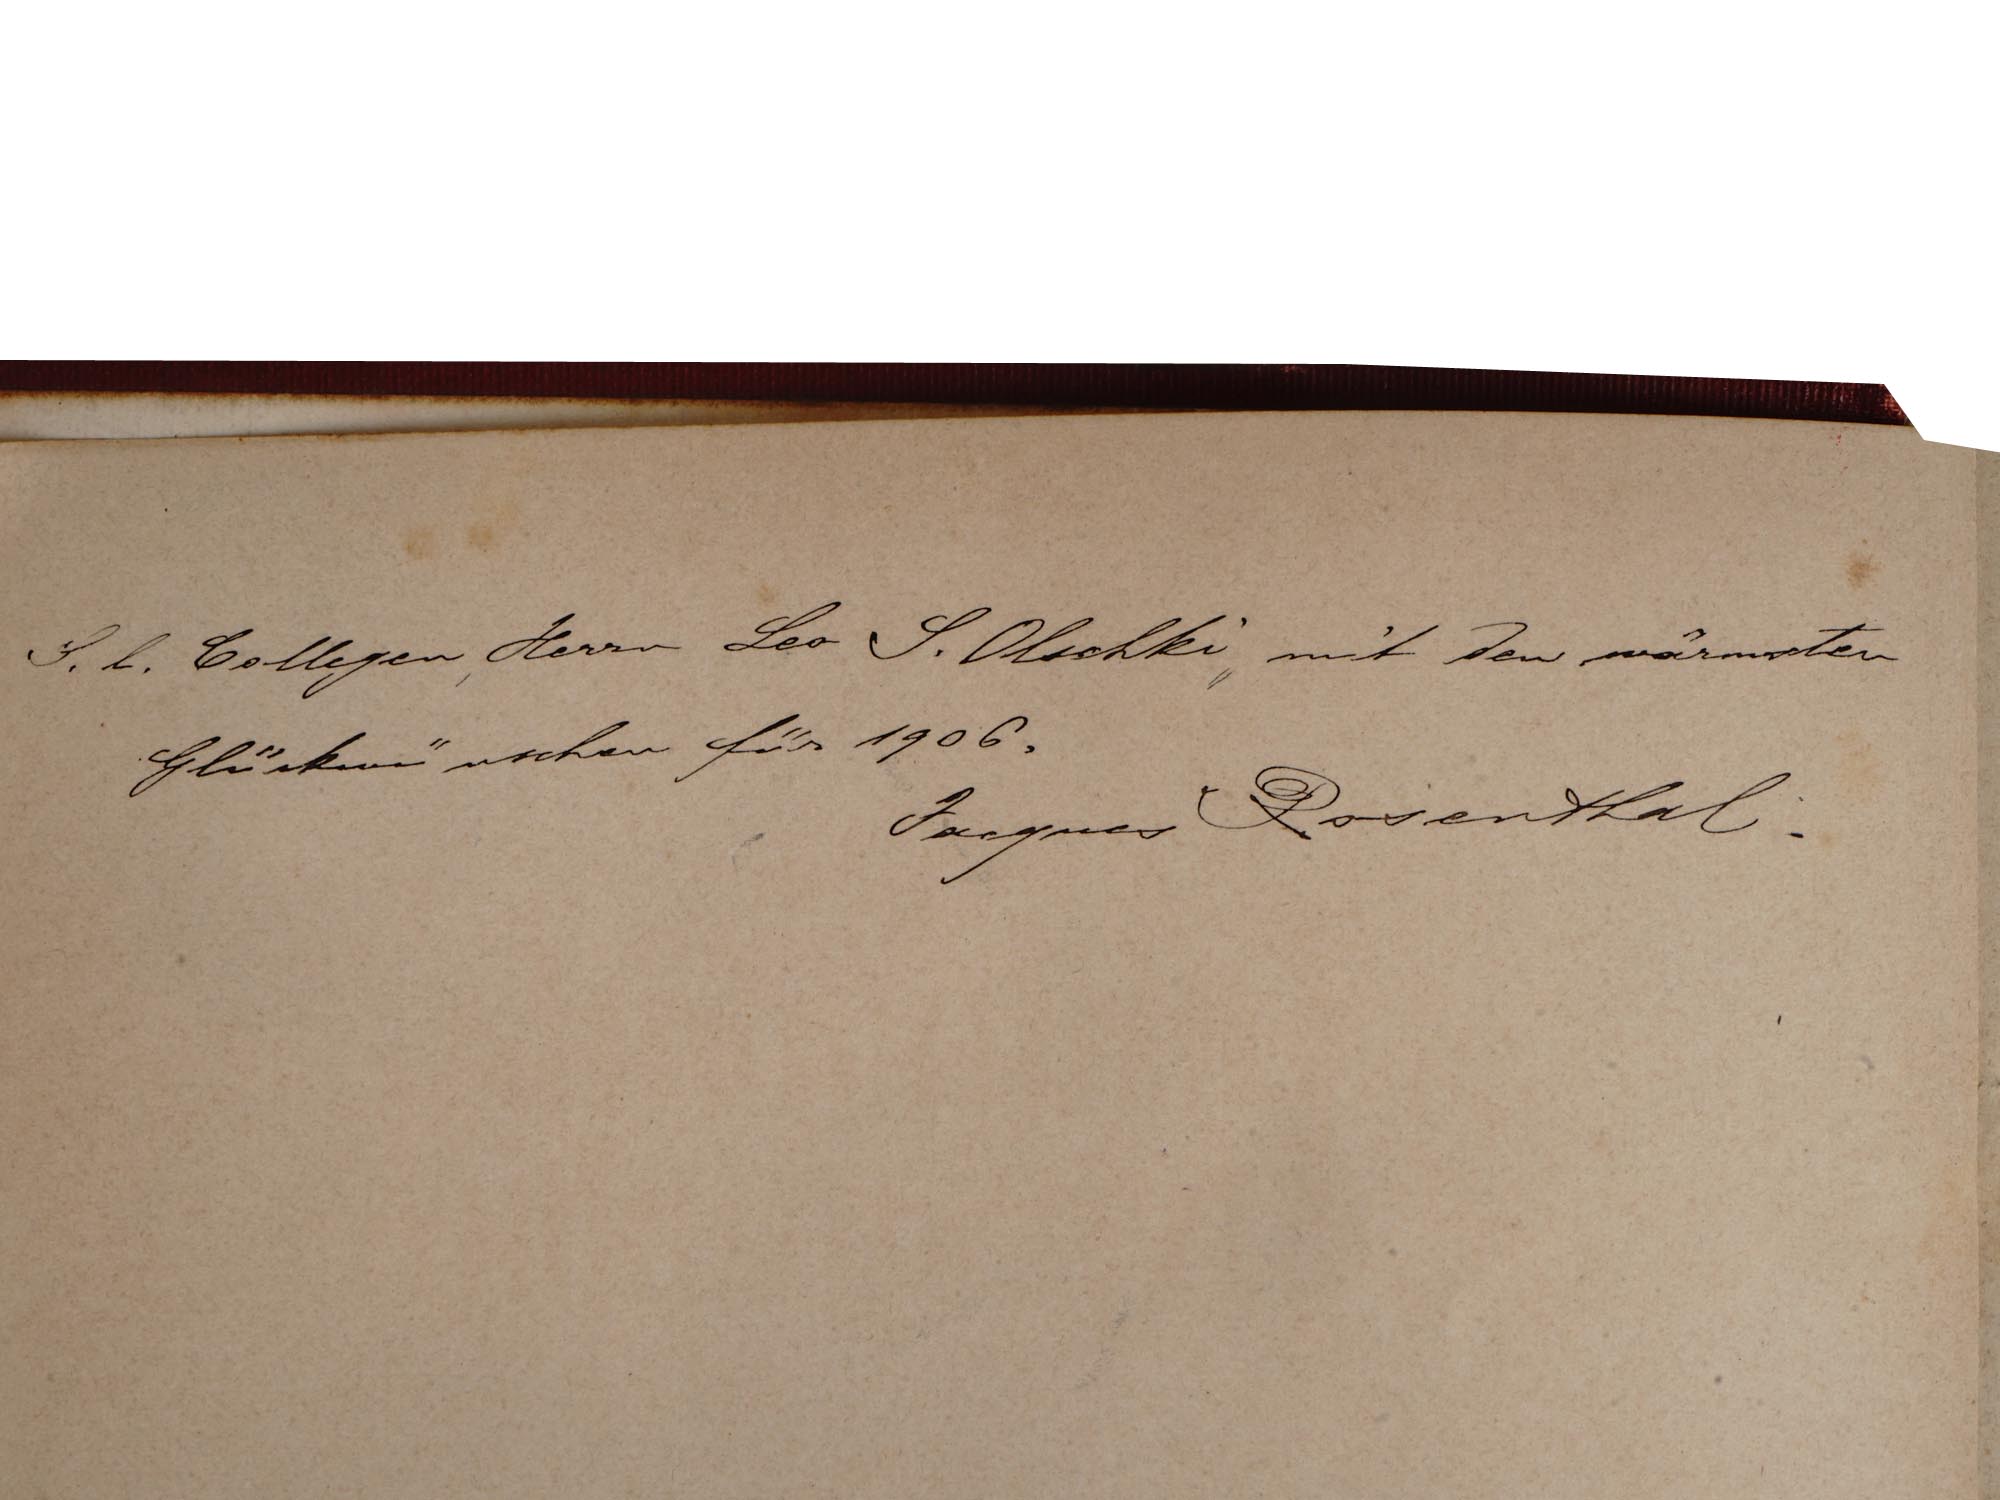 S. l. Collegen, Herrn Leo S. Olschki, mit den wärmsten
Glückwünschen für 1906.
Jacques Rosenthal.